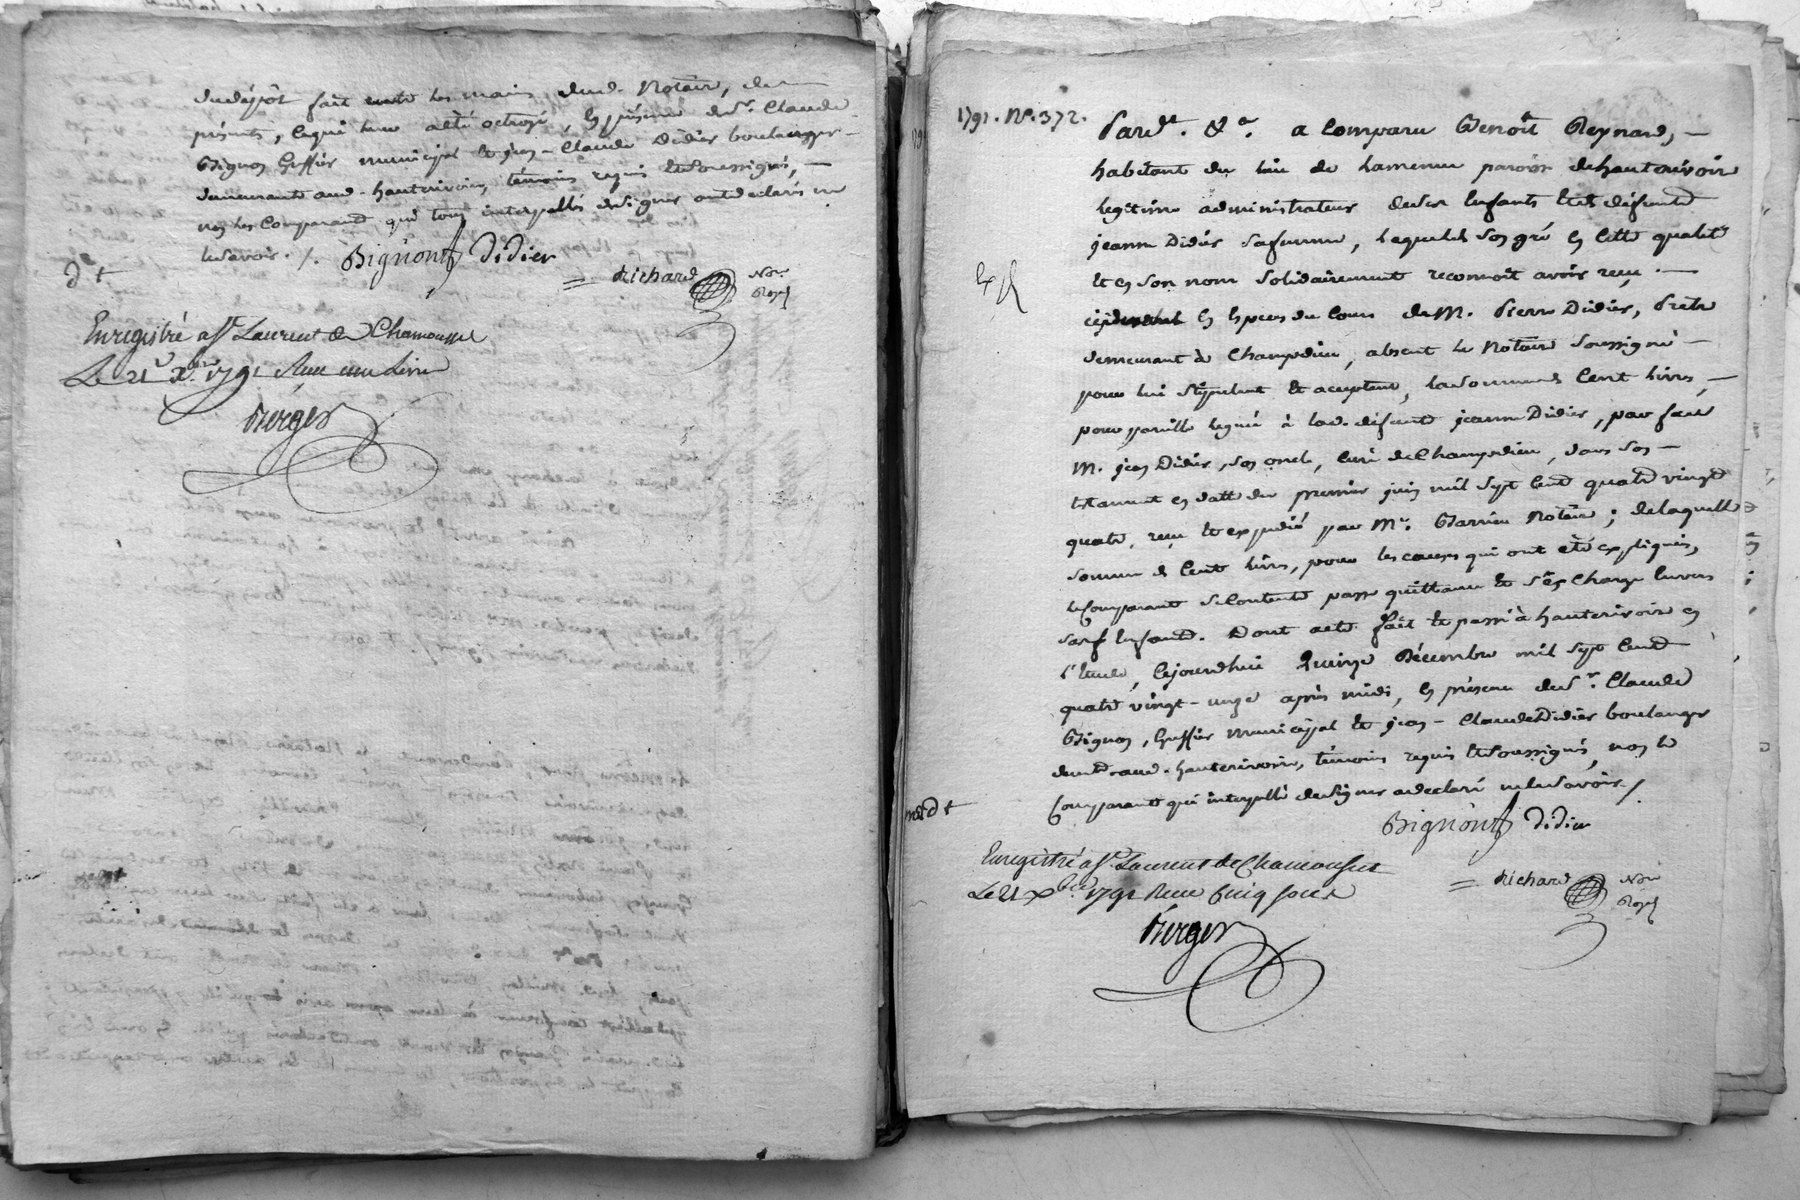 du dépôt fait entre les mains dud. Notaire, de
présents, ce qui leur a été octroyé, en présence de Sr. Claude
Bignon Greffier municipal et jean-Claude Didier boulanger
demeurants aud. hauterivoire, témoins requis et soussignés,
non les Comparants qui tous interpellés de signer ont déclarés ne
le savoir. /. Bignont Didier
dt
= Richard Nore Royal
Enregistré a St Laurent de Chamousset
Le 21 xbre 1791 Reçu une Livre
Berger
1791. No. 372.
Pardt. &a. a Comparu Benoît Reynard,
habitant du lieu de Lamenue paroisse de hauterivoire
legitime administrateur de ses Enfants et de défunte
jeanne Didier sa femme, Lequel de son gré en cette qualité
et en son nom solidairement reconnoit avoir reçu
Exp
en Espèces du Cours de M. Pierre Didier, Prêtre
demeurant à Champdieu, absent le Notaire Soussigné
pour lui stipulant et acceptant, la somme de Cent livres,
pour pareille leguée à lad. défunte jeanne Didier, par feu
M. jean Didier, son oncle, Curé de Champdieu, dans son
testament en datte du premier juin mil sept Cent quatre vingt
quatre, reçu et expedié par Me. Barrieu Notaire ; de laquelle
somme de Cent livres, pour les causes qui ont été expliquées,
le Comparant se Contente passe quittance et s'en Charge Envers
sesd. Enfants. Dont acte fait et passé à hauterivoire en
l'Etude, Cejourdhui quinze Décembre mil sept Cent
quatre vingt-onze après midi, En présence de Sr. Claude
Bignon, Greffier municipal et jean-Claude Didier boulanger
demt. aud. hauterivoire, témoins requis et soussignés, non le
Comparant qui interpellé de signer a déclaré ne le savoir. /
dt
Bignont Didier
= Richard Nore Royal
Enregistré a St Laurent de Chamousset
Le 21 xbre 1791 Reçu Cinq sous
Berger